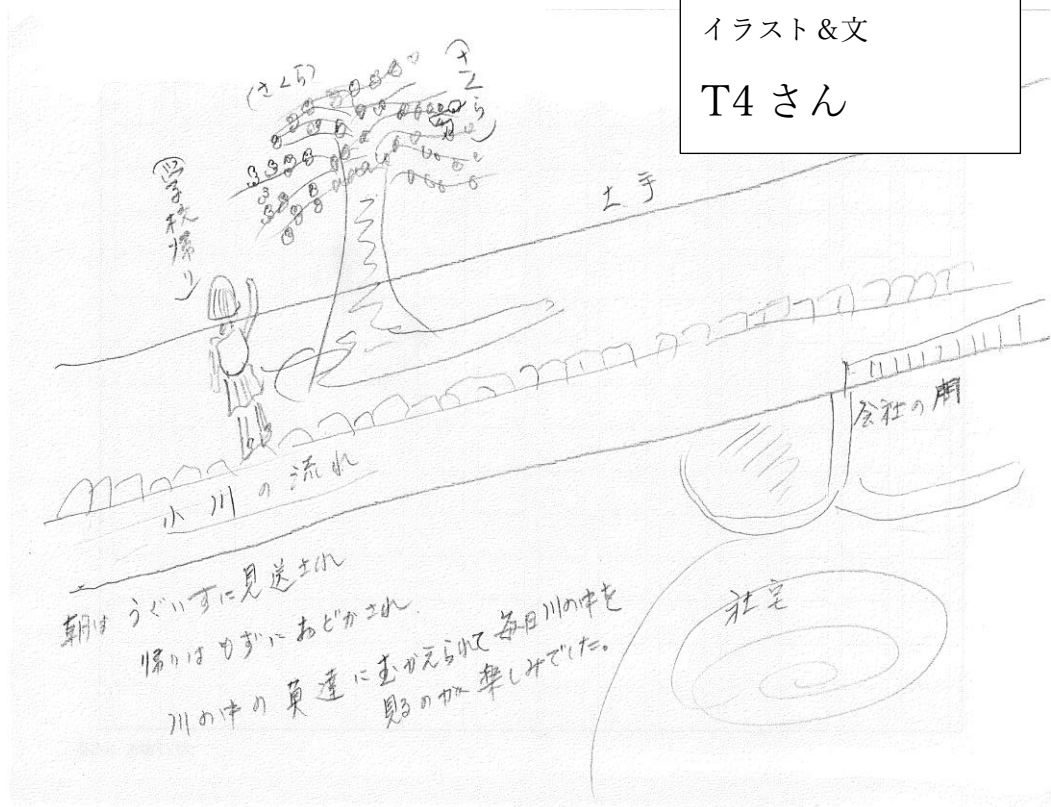 イラスト&文
T4 さん
(さくら)
(さくら)
(学校帰り)
土手
会社の門
小川の流れ
社宅
朝は うぐいすに見送され
帰りは もずに おどかされ.
川の中の 達にむかえられて 毎日川の中を
見るのが 楽しみでした。